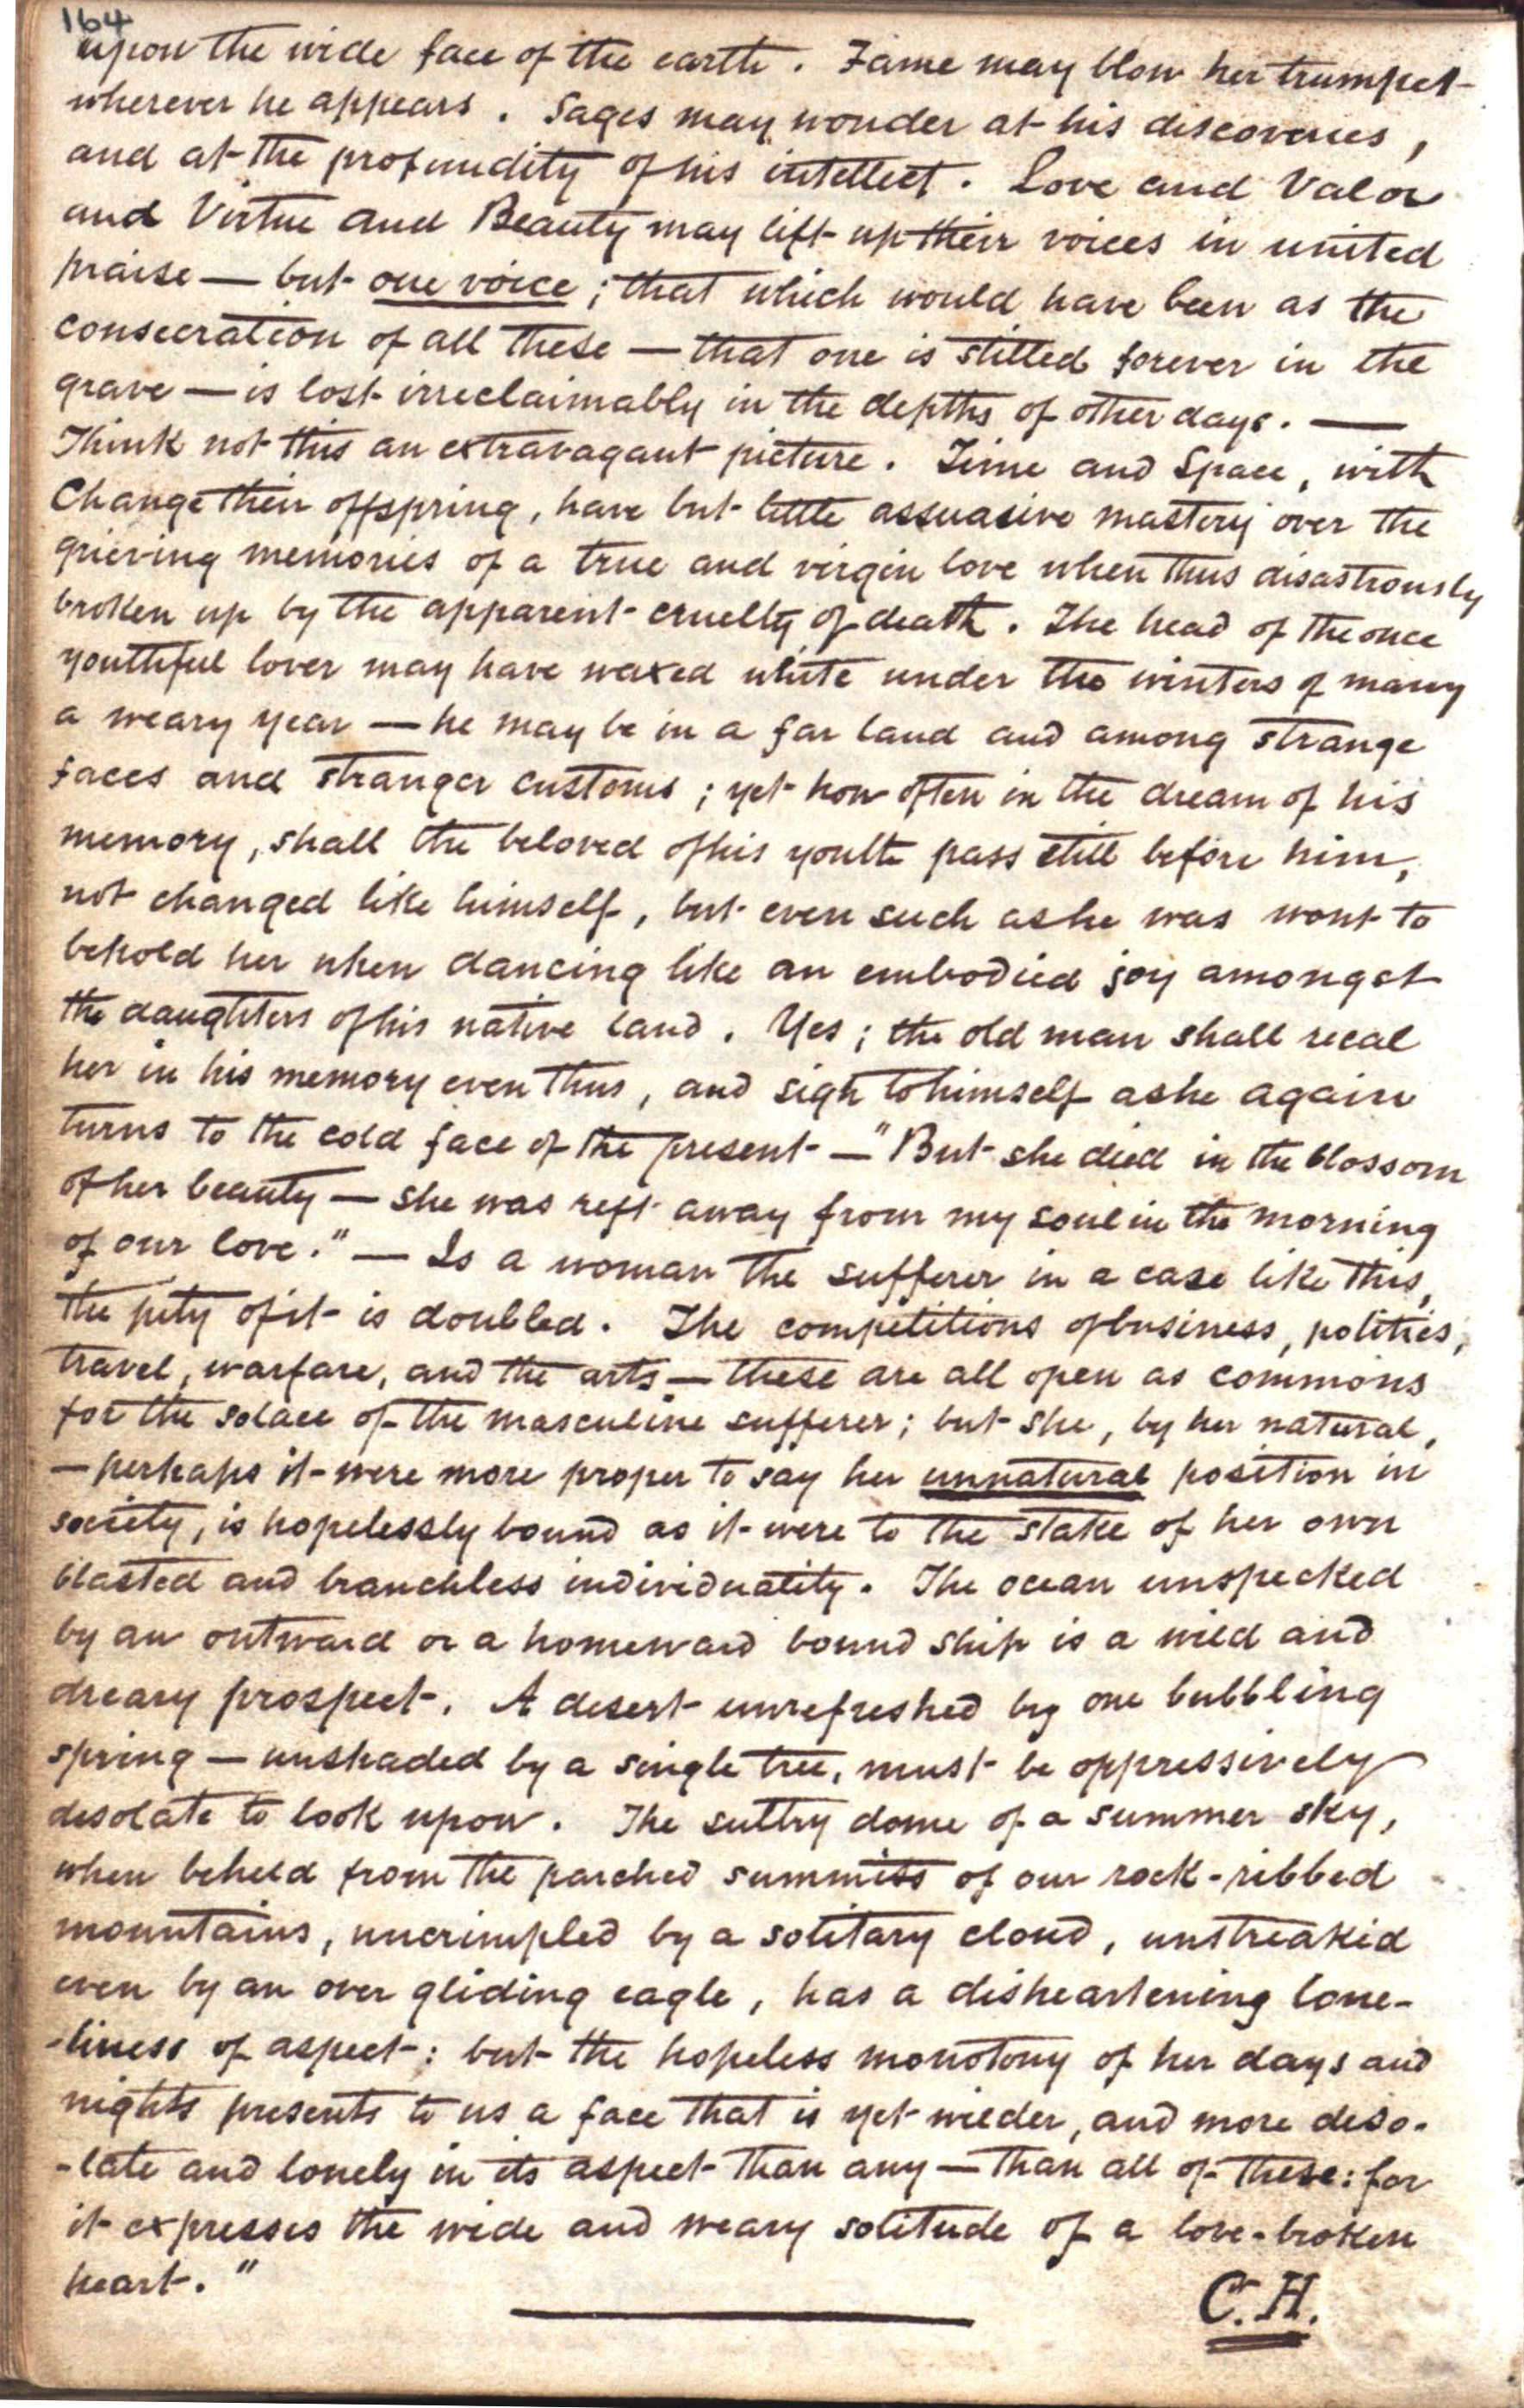 164
upon the wide face of the earth. Fame may blow her trumpet
wherever he appears. Sages may wonder at his discoveries,
and at the profundity of his intellect. Love and Valor
and Virtue and Beauty may lift up their voices in united
praise — but one voice; that which would have been as the
consecration of all these — that one is stilled forever in the
grave — is lost irreclaimably in the depths of other days. —
Think not this an extravagant picture. Time and Space, with
Change their offspring, have but little assuasive mastery over the
grieving memories of a true and virgin love when thus disastrously
broken up by the apparent cruelty of death. The head of the once
youthful lover may have waxed white under the winters of many
a weary year — he may be in a far land and among strange
faces and stranger customs; yet how often in the dream of his
memory, shall the beloved of his youth pass still before him,
not changed like himself, but even such as he was wont to
behold her when dancing like an embodied joy amongst
the daughters of his native land. Yes; the old man shall recal
her in his memory even thus, and sigh to himself as he again
turns to the cold face of the present — "But she died in the blossom
of her beauty — she was reft away from my soul in the morning
of our love." — Is a woman the sufferer in a case like this,
the pity of it is doubled. The competitions of business, politics,
travel, warfare, and the arts — these are all open as commons
for the solace of the masculine sufferer; but she, by her natural,
— perhaps it were more proper to say her unnatural position in
society, is hopelessly bound as it were to the stake of her own
blasted and branchless individuality. The ocean unspecked
by an outward or a homeward bound ship is a wild and
dreary prospect. A desert unrefreshed by one bubbling
spring — unshaded by a single tree, must be oppressively
desolate to look upon. The sultry dome of a summer sky,
when beheld from the parched summits of our rock-ribbed
mountains, uncrimpled by a solitary cloud, unstreaked
even by an over gliding eagle, has a disheartening lone-
-liness of aspect: but the hopeless monotony of her days and
nights presents to us a face that is yet wilder, and more deso-
-late and lonely in its aspect than any — than all of these: for
it expresses the wide and weary solitude of a love-broken
heart."
C.H.